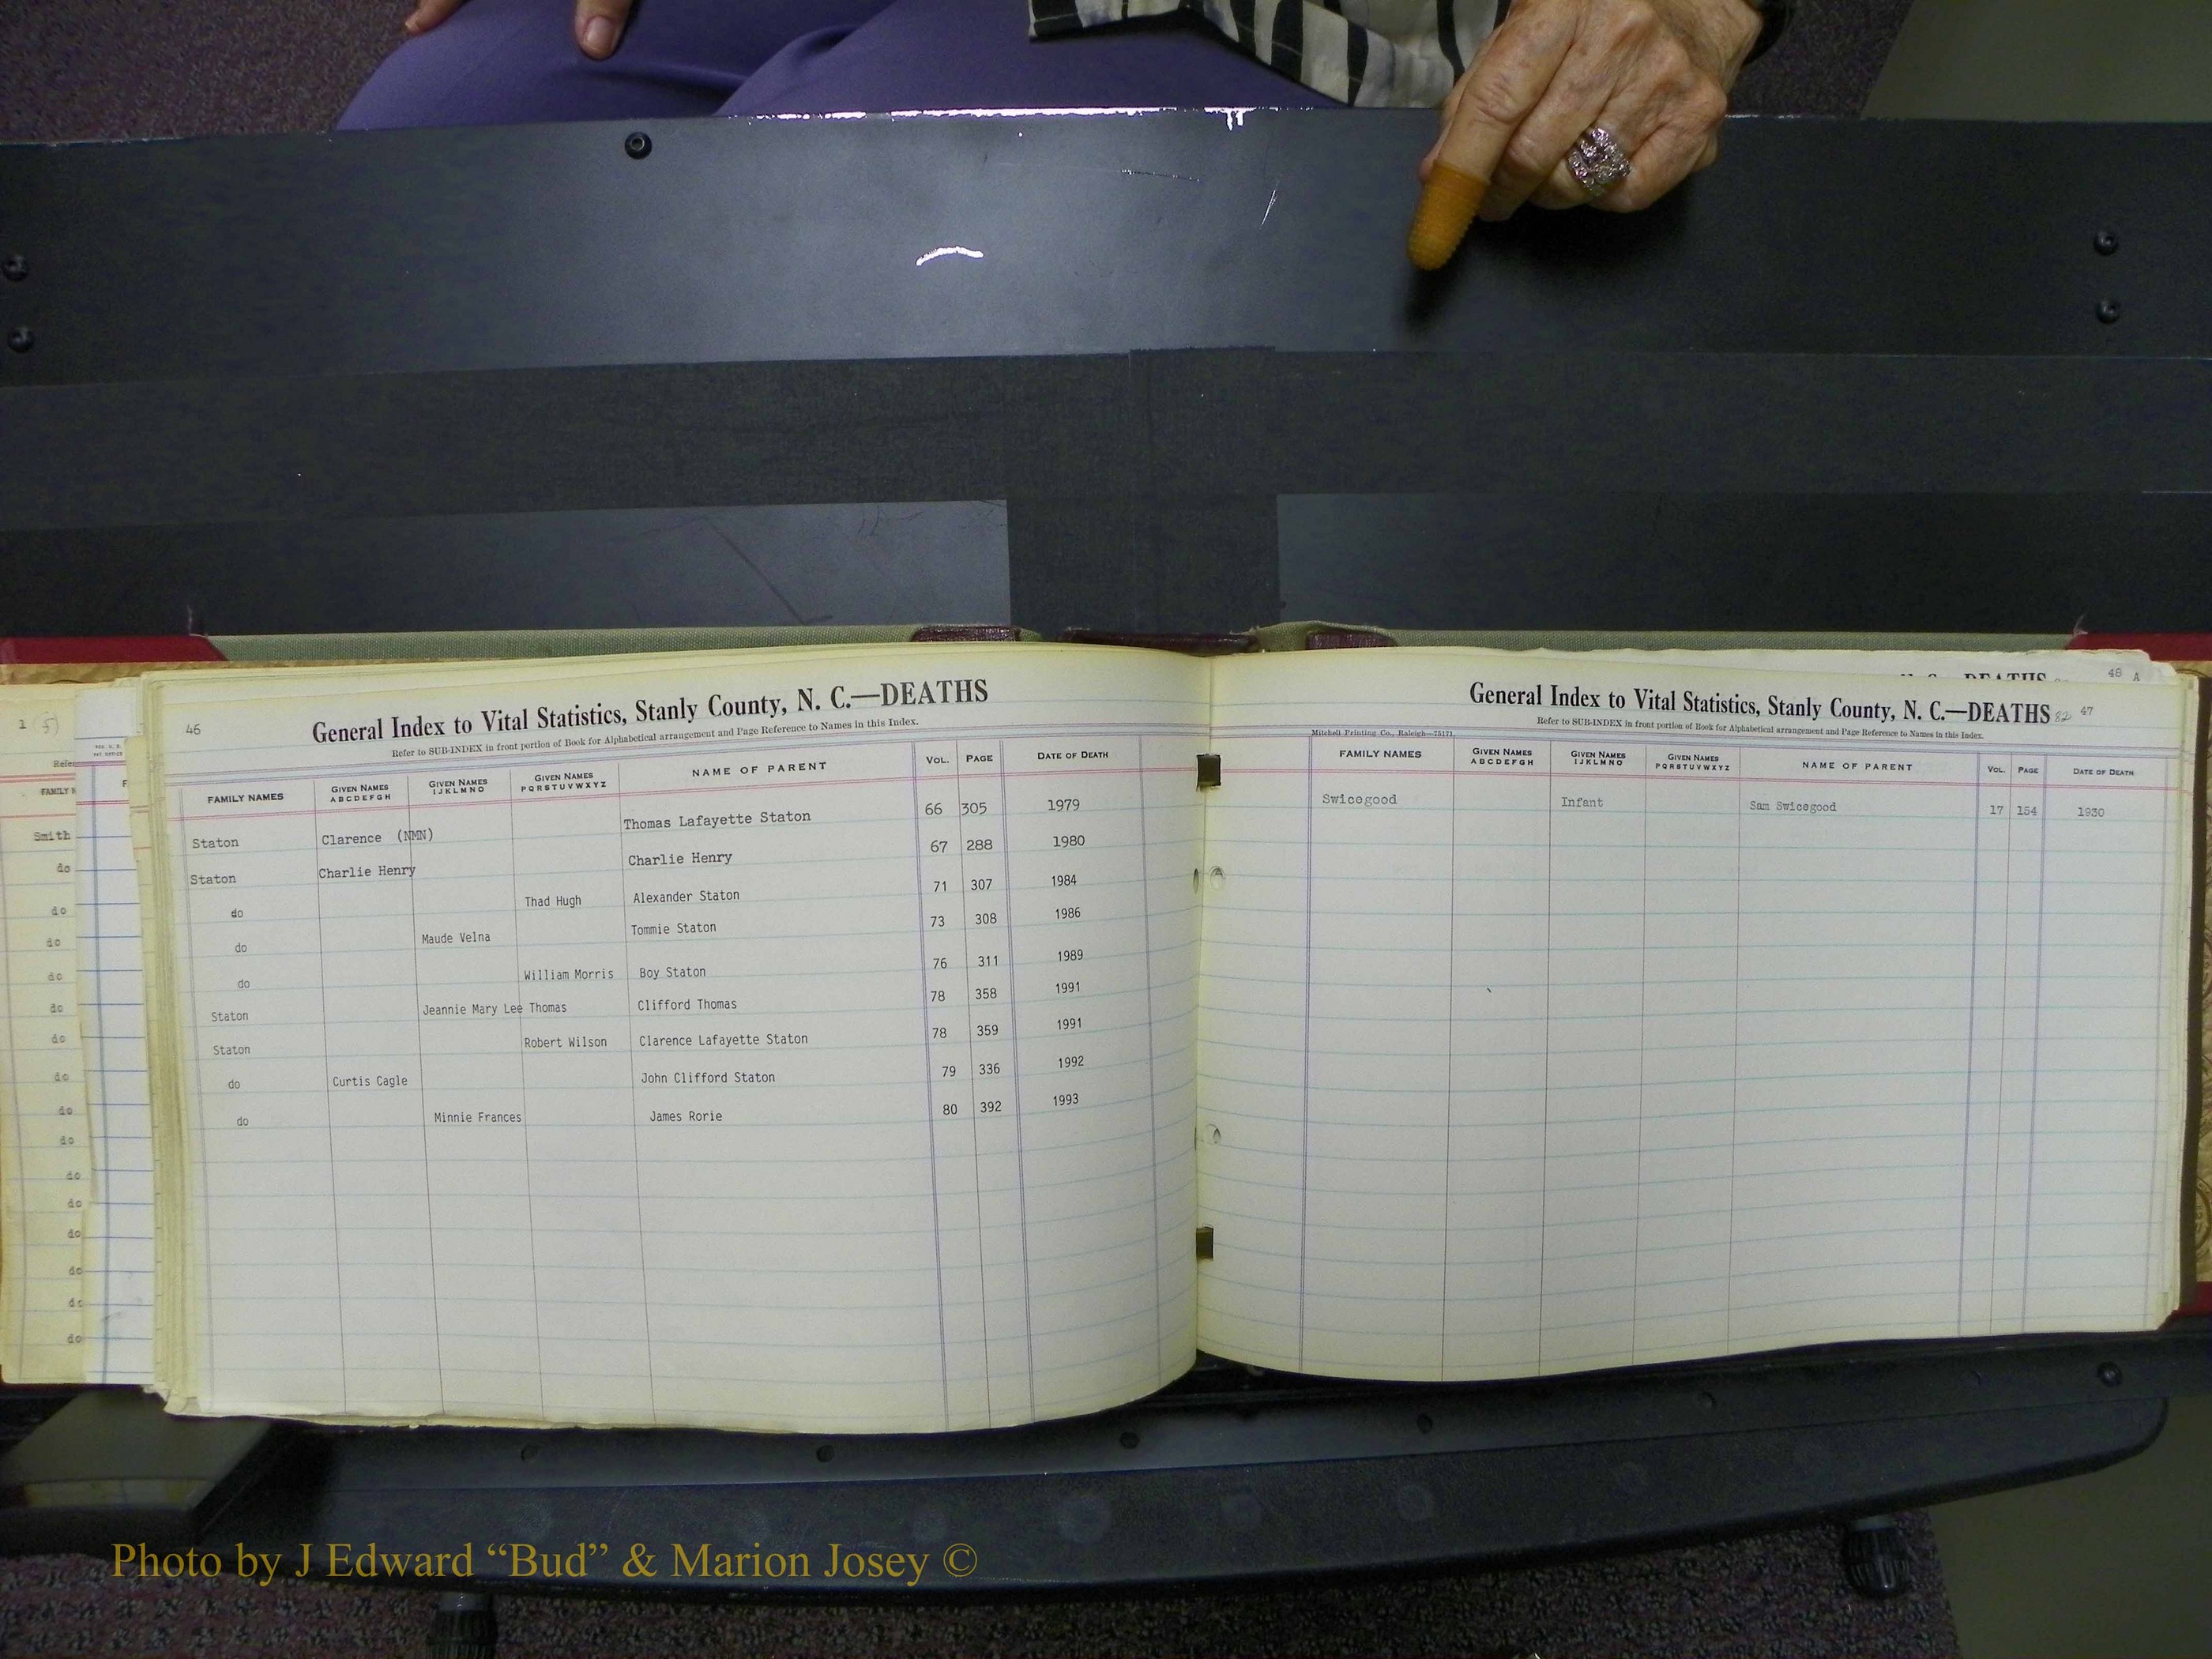 1 (5)
Refer
FAMILY N
Smith
do
do
do
do
do
do
do
do
do
do
do
do
do
do
do
46
General Index to Vital Statistics, Stanly County, N. C.—DEATHS
Refer to SUB-INDEX in front portion of Book for Alphabetical arrangement and Page Reference to Names in this Index.
FAMILY NAMES GIVEN NAMES ABCDEFGH GIVEN NAMES IJKLMNO GIVEN NAMES PQRSTUVWXYZ NAME OF PARENT VOL. PAGE DATE OF DEATH
Staton Clarence (NMN) Thomas Lafayette Staton 66 305 1979
Staton Charlie Henry Charlie Henry 67 288 1980
do Thad Hugh Alexander Staton 71 307 1984
do Maude Velna Tommie Staton 73 308 1986
do William Morris Boy Staton 76 311 1989
Staton Jeannie Mary Lee Thomas Clifford Thomas 78 358 1991
Staton Robert Wilson Clarence Lafayette Staton 78 359 1991
do Curtis Cagle John Clifford Staton 79 336 1992
do Minnie Frances James Rorie 80 392 1993
48 A
DEATHS
General Index to Vital Statistics, Stanly County, N. C.—DEATHS 82 47
Refer to SUB-INDEX in front portion of Book for Alphabetical arrangement and Page Reference to Names in this Index.
Mitchell Printing Co., Raleigh—75171
FAMILY NAMES GIVEN NAMES ABCDEFGH GIVEN NAMES IJKLMNO GIVEN NAMES PQRSTUVWXYZ NAME OF PARENT VOL. PAGE DATE OF DEATH
Swicegood Infant Sam Swicegood 17 154 1930
Photo by J Edward “Bud” & Marion Josey ©